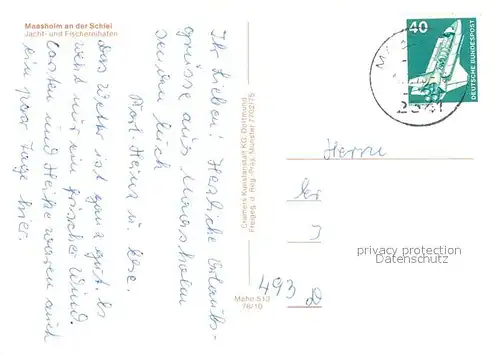 Maasholm an der Schlei
Jacht- und Fischereihafen
Ihr Lieben! Herzliche Urlaubs-
grüsse aus Maasholm
senden Euch
Karl-Heinz u. Ilse.
Das Wetter ist ganz gut. Es
weht nur ein frischer Wind.
Carsten und Heike waren auch
ein paar Tage hier.
Cramers Kunstanstalt KG, Dortmund
Freigeg. d. Reg. Präs. Münster
Maho 513
76/10
40
DEUTSCHE BUNDESPOST
Herrn
privacy protection
Datenschutz
493